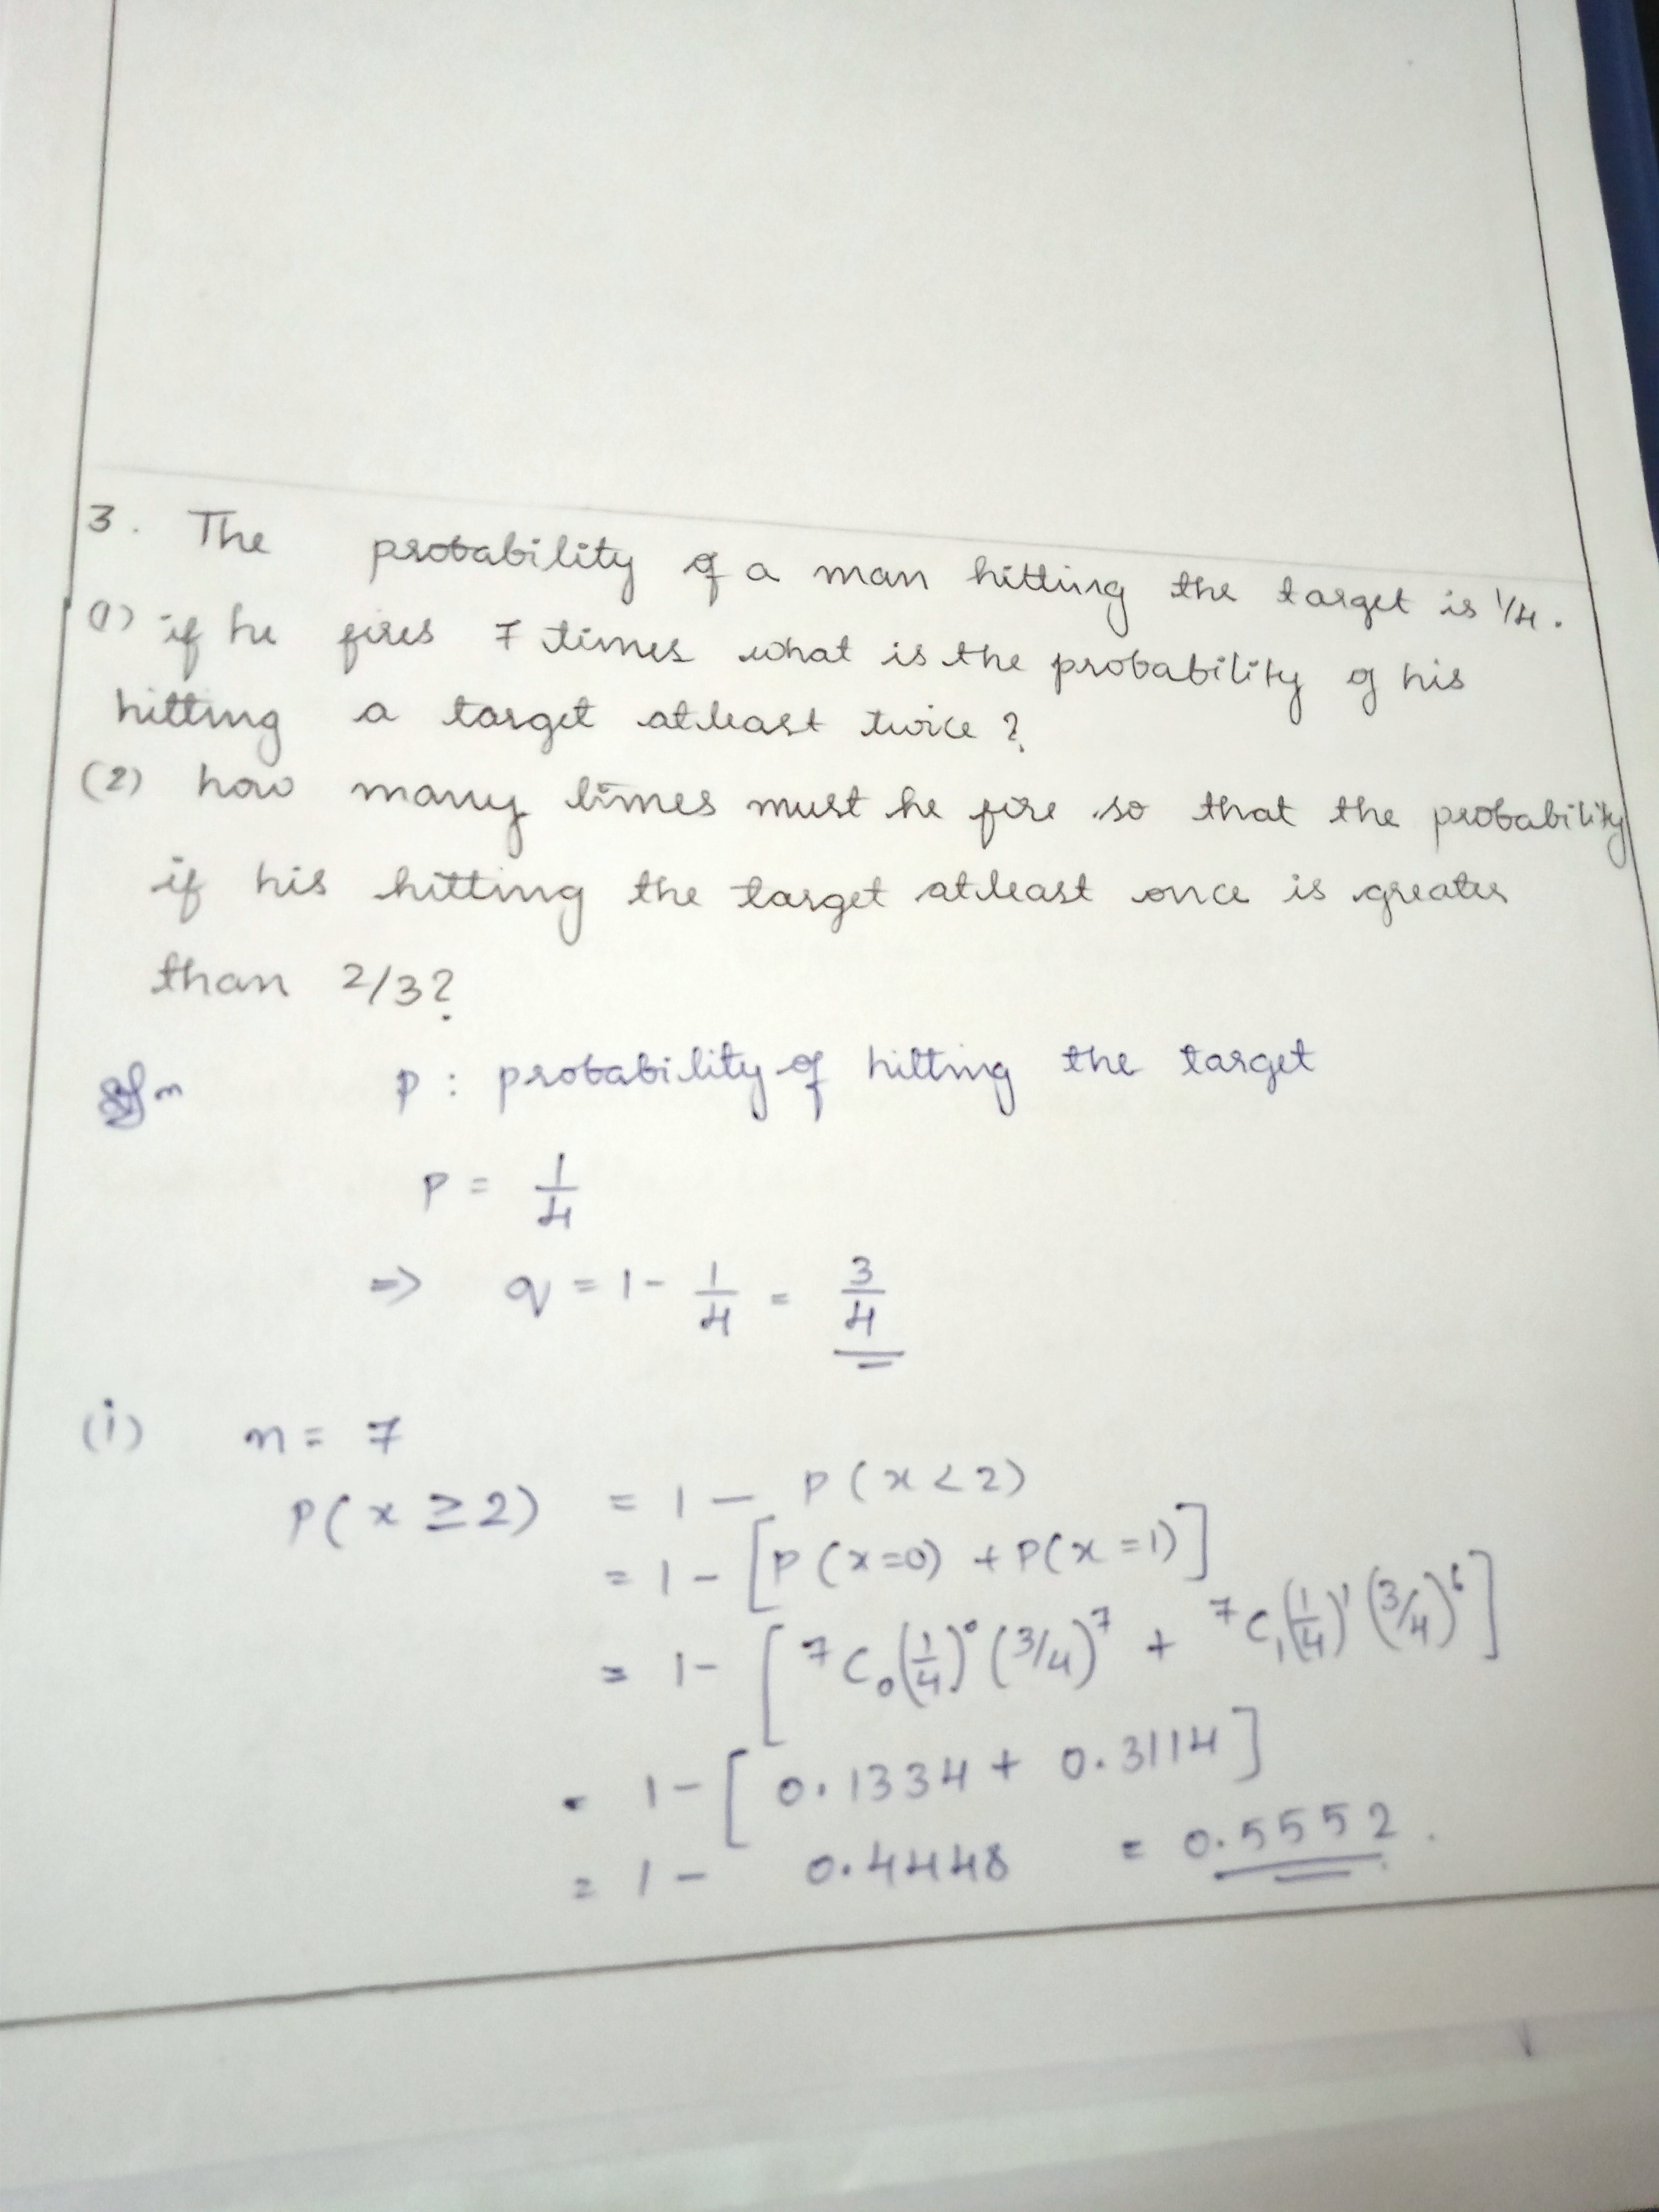 3. The probability of a man hitting the target is 1/4.
(1) if he fires 7 times what is the probability of his
hitting a target atleast twice?
(2) how many times must he fire so that the probability
if his hitting the target atleast once is greater
than 2/3?
Soln p : probability of hitting the target
p = 1/4
=> q = 1 - 1/4 = 3/4
(i) n = 7
P(x ≥ 2) = 1 - P(x < 2)
= 1 - [P(x=0) + P(x=1)]
= 1 - [⁷C₀(1/4)⁰(3/4)⁷ + ⁷C₁(1/4)¹(3/4)⁶]
= 1 - [0.1334 + 0.3114]
= 1 - 0.4448 = 0.5552.